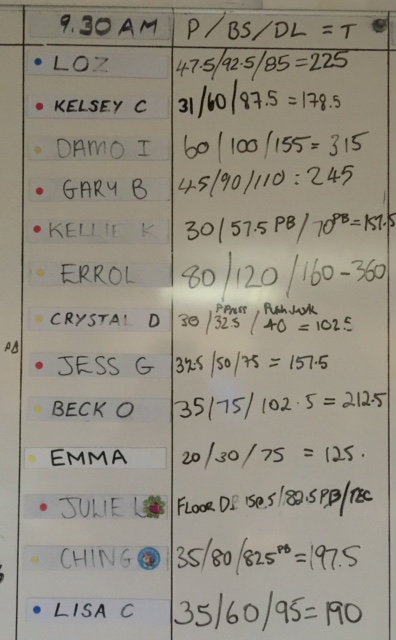 9.30 AM P/BS/DL = T
LOZ 47.5/92.5/85=225
KELSEY C 31/60/87.5 =178.5
DAMO I 60/100/155= 315
GARY B 45/90/110 : 245
KELLIE K 30/57.5 PB/70PB=157.5
ERROL 80/120/160-360
CRYSTAL D 30/32.5 P Press/40 Push Jerk = 102.5
PB JESS G 32.5/50/75 = 157.5
BECK O 35/75/102.5 =212.5
EMMA 20/30/75 = 125.
JULIE L FLOOR 150.5/82.5PB/
CHING 35/80/825PB=197.5
LISA C 35/60/95=190